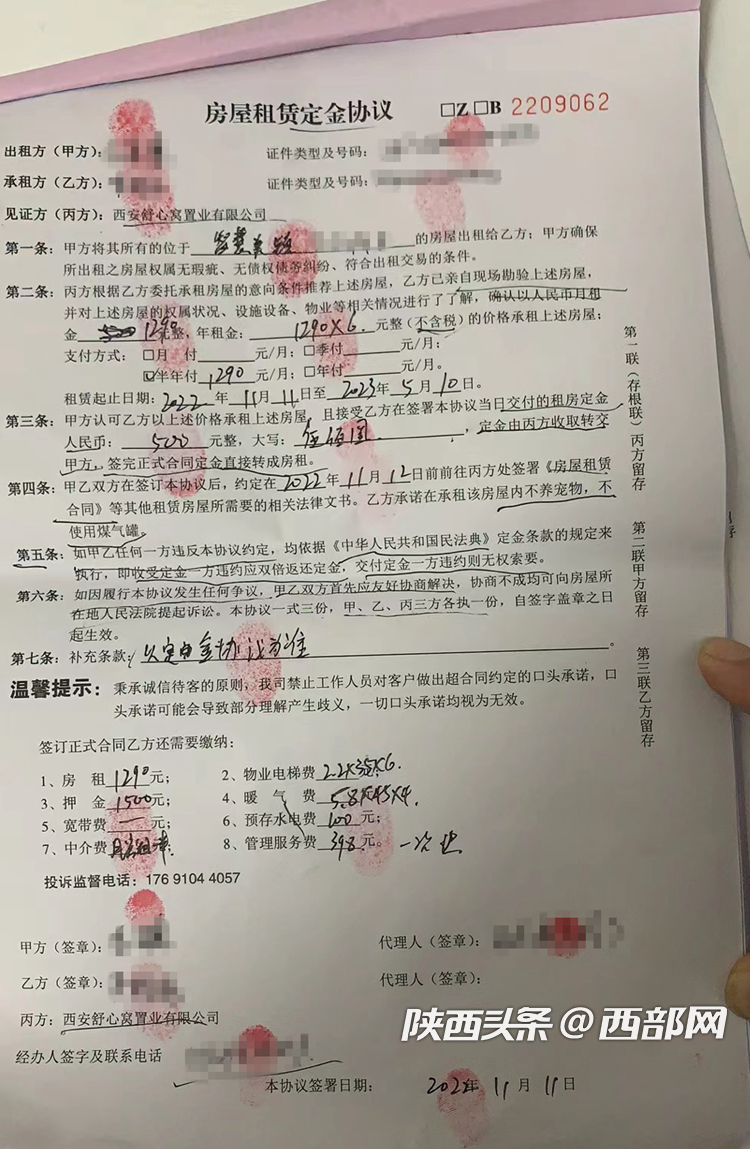 房屋租赁定金协议 □Z □B 2209062
出租方（甲方）： 证件类型及号码：
承租方（乙方）： 证件类型及号码：
见证方（丙方）：西安舒心窝置业有限公司
第一条：甲方将其所有的位于 的房屋出租给乙方；甲方确保
所出租之房屋权属无瑕疵、无债权债务纠纷、符合出租交易的条件。
第二条：丙方根据乙方委托承租房屋的意向条件推荐上述房屋，乙方已亲自现场勘验上述房屋，
并对上述房屋的权属状况、设施设备、物业等相关情况进行了了解，确认以人民币月租
金 1290 元整，年租金： 1290×6 元整（不含税）的价格承租上述房屋；
支付方式：□月 付 元/月；□季付 元/月；
☑半年付 1290 元/月；□年付 元/月。
租赁起止日期：2022 年 11 月 11 日至 2023 年 5 月 10 日。
第三条：甲方认可乙方以上述价格承租上述房屋，且接受乙方在签署本协议当日交付的租房定金
人民币： 500 元整，大写：伍佰圆 ，定金由丙方收取转交
甲方，签完正式合同定金直接转成房租。
第四条：甲乙双方在签订本协议后，约定在 2022 年 11 月 12 日前前往丙方处签署《房屋租赁
合同》等其他租赁房屋所需要的相关法律文书。乙方承诺在承租该房屋内不养宠物，不
使用煤气罐。
第五条：如甲乙任何一方违反本协议约定，均依据《中华人民共和国民法典》定金条款的规定来
执行，即收受定金一方违约应双倍返还定金，交付定金一方违约则无权索要。
第六条：如因履行本协议发生任何争议，甲乙双方首先应友好协商解决，协商不成均可向房屋所
在地人民法院提起诉讼。本协议一式三份，甲、乙、丙三方各执一份，自签字盖章之日
起生效。
第七条：补充条款：以定金协议为准 。
温馨提示：秉承诚信待客的原则，我司禁止工作人员对客户做出超合同约定的口头承诺，口
头承诺可能会导致部分理解产生歧义，一切口头承诺均视为无效。
签订正式合同乙方还需要缴纳：
1、房 租 1290 元； 2、物业电梯费 2.2×35×6
3、押 金 1500 元； 4、暖 气 费 5.8×45×4
5、宽带费 一 元； 6、预存水电费 100 元；
7、中介费 8、管理服务费 398 元。一次性
投诉监督电话：176 9104 4057
甲方（签章）： 代理人（签章）：
乙方（签章）： 代理人（签章）：
丙方：西安舒心窝置业有限公司
经办人签字及联系电话
本协议签署日期： 2022 年 11 月 11 日
第一联（存根联）丙方留存
第二联甲方留存
第三联乙方留存
陕西头条@西部网